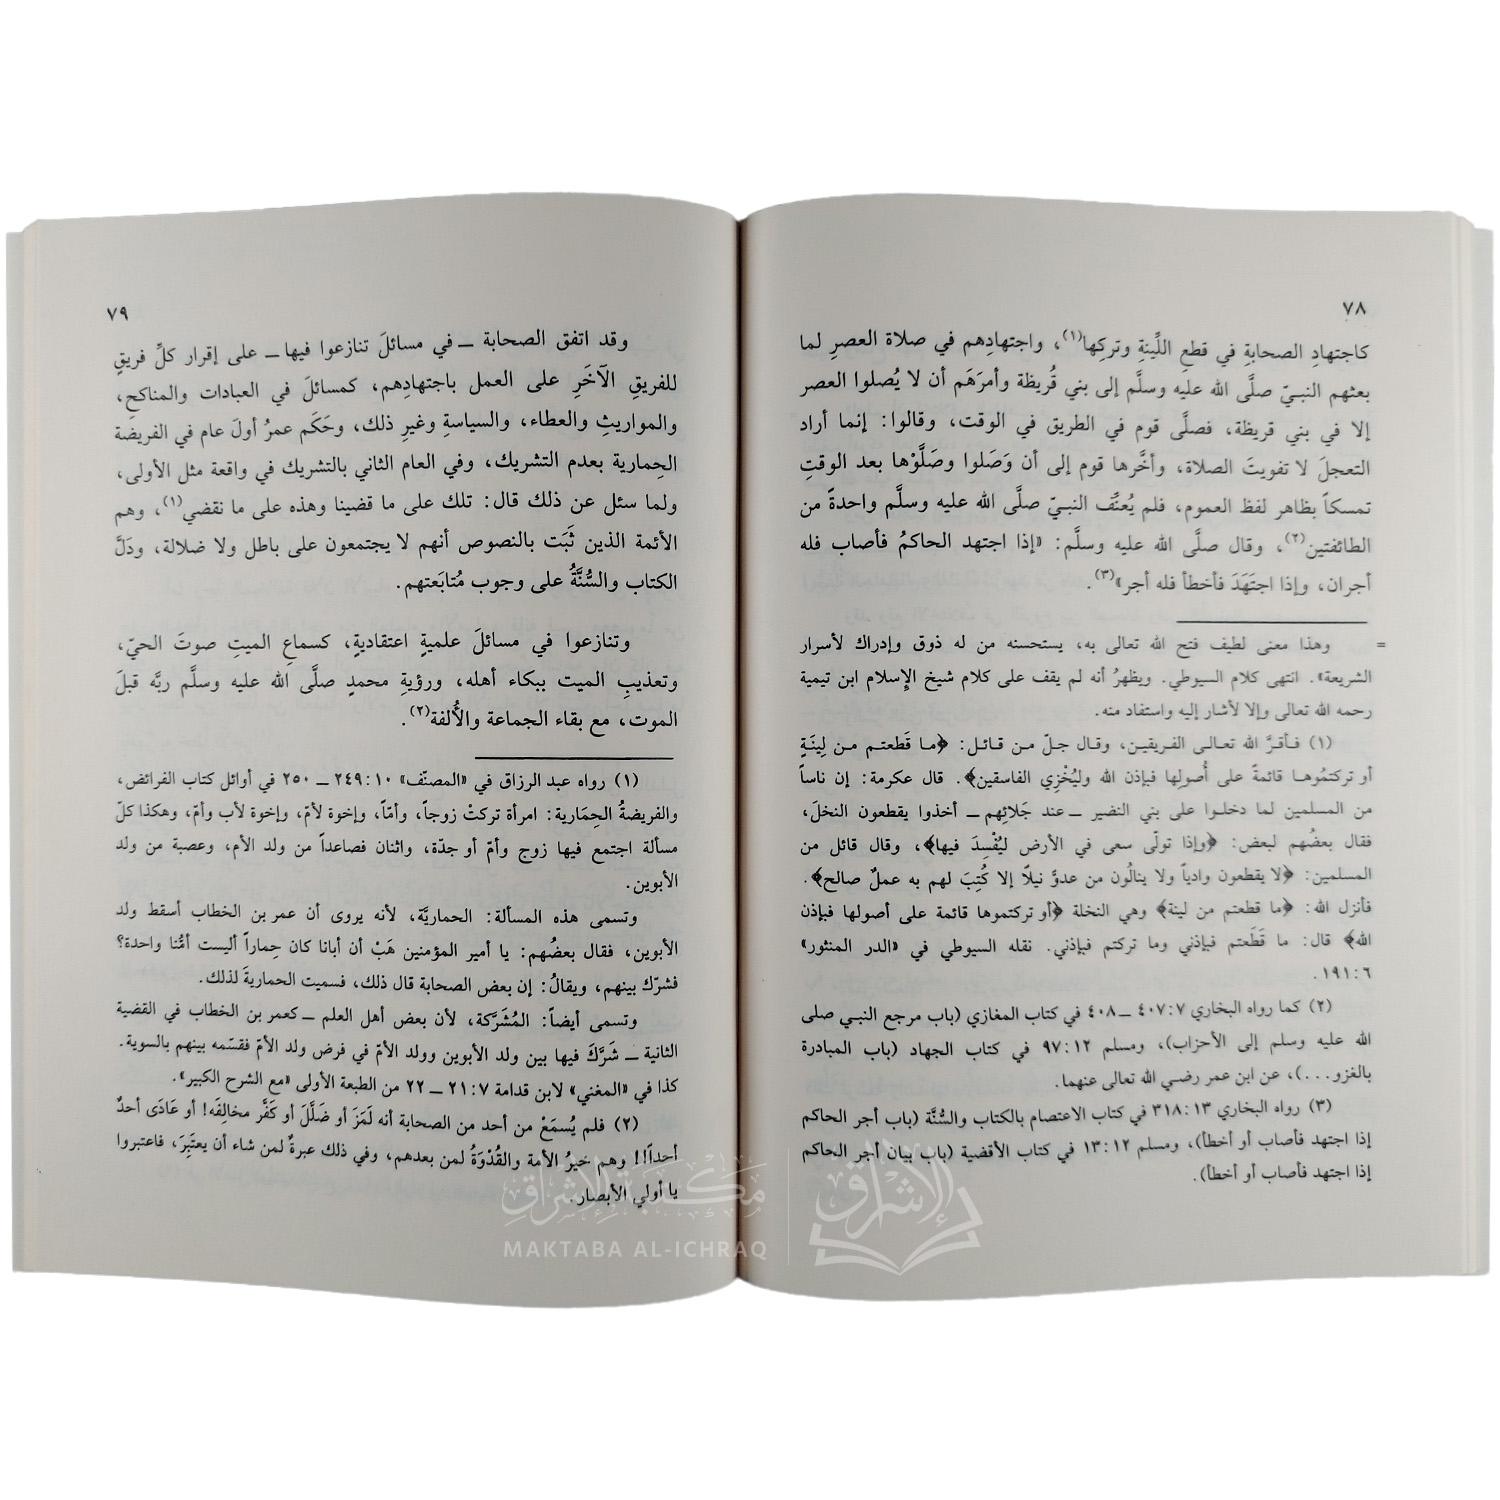 ٧٨
كاجتهادِ الصحابةِ في قطعِ اللِّينةِ وتركِها(١)، واجتهادِهم في صلاة العصرِ لما
بعثهم النبيّ صلَّى الله عليه وسلَّم إلى بني قُريظة وأمرَهَم أن لا يُصلوا العصر
إلا في بني قريظة، فصلَّى قوم في الطريق في الوقت، وقالوا: إنما أراد
التعجلَ لا تفويتَ الصلاة، وأخَّرها قوم إلى أن وَصَلوا وصَلَّوْها بعد الوقتِ
تمسكاً بظاهر لفظ العموم، فلم يُعنِّف النبيّ صلَّى الله عليه وسلَّم واحدةً من
الطائفتين(٢)، وقال صلَّى الله عليه وسلَّم: «إذا اجتهد الحاكمُ فأصاب فله
أجران، وإذا اجتَهَدَ فأخطأ فله أجر»(٣).
= وهذا معنى لطيف فتح الله تعالى به، يستحسنه من له ذوق وإدراك لأسرار
الشريعة». انتهى كلام السيوطي. ويظهرُ أنه لم يقف على كلام شيخ الإسلام ابن تيمية
رحمه الله تعالى وإلا لأشار إليه واستفاد منه.
(١) فـأقـرَّ الله تعـالـى الفريقيـن، وقـال جـلّ مـن قـائـل: ﴿مـا قَطعتـم مـن لِينَةٍ
أو تركتمُوهـا قائمةً على أُصولِها فبإذن الله وليُخْزِي الفاسقين﴾. قال عكرمة: إن ناساً
من المسلمين لما دخلـوا على بني النضير ــ عند جَلائِهم ــ أخذوا يقطعون النخلَ،
فقال بعضُهم لبعض: ﴿وإذا تولّى سعى في الأرض ليُفْسِدَ فيها﴾، وقال قائل من
المسلمين: ﴿لا يقطعون وادياً ولا ينالُون من عدوّ نيلًا إلا كُتِبَ لهم به عملٌ صالح﴾.
فأنزل الله: ﴿ما قطعتم من لينة﴾ وهي النخلة ﴿أو تركتموها قائمة على أصولها فبإذن
الله﴾ قال: ما قَطَعتم فبإذني وما تركتم فبإذني. نقله السيوطي في «الدر المنثور»
٦:١٩١.
(٢) كما رواه البخاري ٧:٤٠٧ ــ ٤٠٨ في كتاب المغازي (باب مرجع النبـي صلى
الله عليه وسلم إلى الأحزاب)، ومسلم ١٢:٩٧ في كتاب الجهاد (باب المبادرة
بالغزو...)، عن ابن عمر رضـي الله تعالى عنهما.
(٣) رواه البخاري ١٣:٣١٨ في كتاب الاعتصام بالكتاب والسُّنَّة (باب أجر الحاكم
إذا اجتهد فأصاب أو أخطأ)، ومسلم ١٢:١٣ في كتاب الأقضية (باب بيان أجر الحاكم
إذا اجتهد فأصاب أو أخطأ).
٧٩
وقد اتفق الصحابة ــ في مسائلَ تنازعوا فيها ــ على إقرار كلِّ فريقٍ
للفريق الآخَرِ على العمل باجتهادِهم، كمسائلَ في العبادات والمناكحِ،
والمواريثِ والعطاء، والسياسةِ وغيرِ ذلك، وحَكَم عمرُ أولَ عام في الفريضة
الحِمارية بعدم التشريك، وفي العام الثاني بالتشريك في واقعة مثل الأولى،
ولما سئل عن ذلك قال: تلك على ما قضينا وهذه على ما نقضي(١)، وهم
الأئمة الذين ثَبَت بالنصوص أنهم لا يجتمعون على باطل ولا ضلالة، ودَلَّ
الكتاب والسُّنَّةُ على وجوب مُتابَعتهم.
وتنازعوا في مسائلَ علميةٍ اعتقاديةٍ، كسماعِ الميتِ صوتَ الحيّ،
وتعذيبِ الميت ببكاء أهله، ورؤيةِ محمدٍ صلَّى الله عليه وسلَّم ربَّه قبلَ
الموت، مع بقاء الجماعة والأُلفة(٢).
(١) رواه عبد الرزاق في «المصنّف» ١٠:٢٤٩ ــ ٢٥٠ في أوائل كتاب الفرائض،
والفريضةُ الحِمَارية: امرأة تركتْ زوجاً، وأمّاً، وإخوة لأمّ، وإخوة لأب وأمّ، وهكذا كلّ
مسألة اجتمع فيها زوج وأمّ أو جدّة، واثنان فصاعداً من ولد الأم، وعصبة من ولد
الأبوين.
وتسمى هذه المسألة: الحماريَّة، لأنه يروى أن عمر بن الخطاب أسقط ولد
الأبوين، فقال بعضُهم: يا أمير المؤمنين هَبْ أن أبانا كان حِماراً أليست أمُّنا واحدة؟
فشرّك بينهم، ويقالُ: إن بعض الصحابة قال ذلك، فسميت الحماريةَ لذلك.
وتسمى أيضاً: المُشَرَّكة، لأن بعض أهل العلم ــ كعمر بن الخطاب في القضية
الثانية ــ شَرَّكَ فيها بين ولد الأبوين وولد الأمّ في فرض ولد الأمّ فقسّمه بينهم بالسوية.
كذا في «المغني» لابن قدامة ٧:٢١ ــ ٢٢ من الطبعة الأولى «مع الشرح الكبير».
(٢) فلم يُسمَعْ من أحد من الصحابة أنه لَمَزَ أو ضَلَّلَ أو كَفَّر مخالِفَه! أو عَادَى أحدٌ
أحداً!! وهم خيرُ الأمة والقُدْوَةُ لمن بعدهم، وفي ذلك عبرةٌ لمن شاء أن يعتَبِرَ، فاعتبروا
يا أولي الأبصار.
مكتبة الإشراق
MAKTABA AL-ICHRAQ
الإشراق